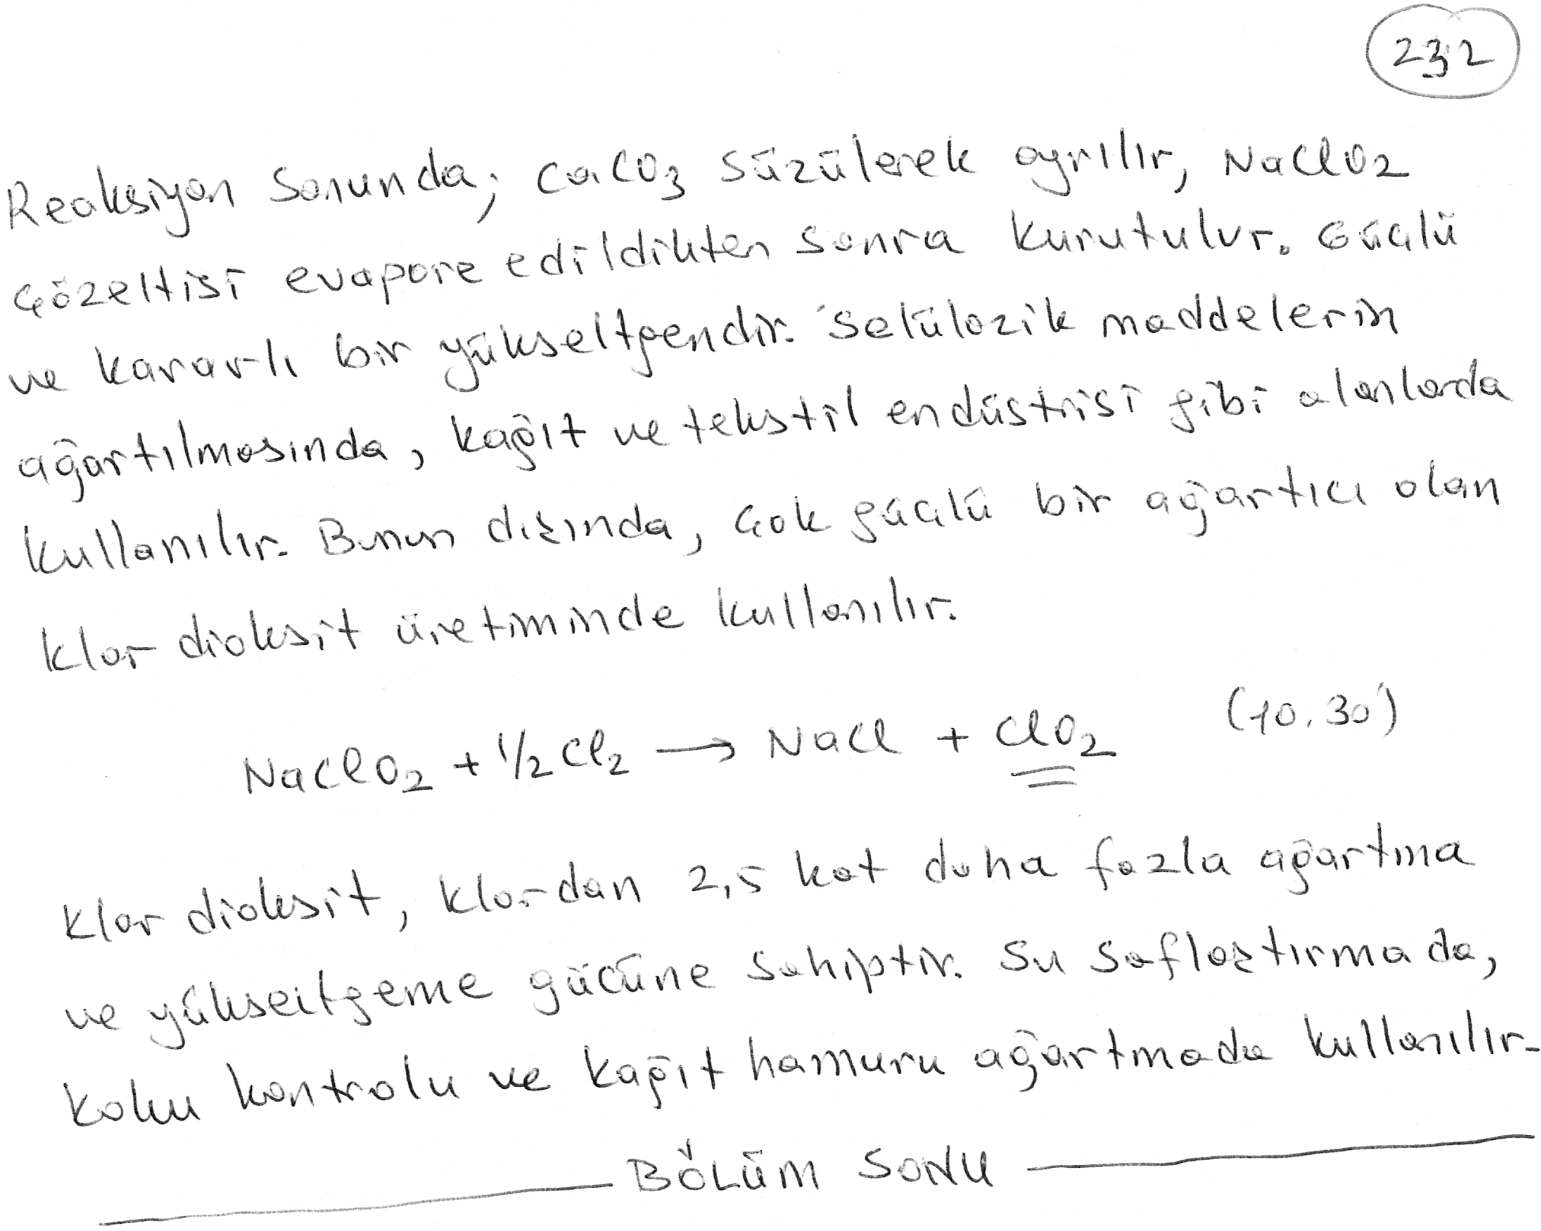 232
Reaksiyon sonunda; CaCO3 süzülerek ayrılır, NaClO2
çözeltisi evapore edildikten sonra kurutulur. Güçlü
ve kararlı bir yükseltgendir. Selülozik maddelerin
ağartılmasında, kağıt ve tekstil endüstrisi gibi alanlarda
kullanılır. Bunun dışında, çok güçlü bir ağartıcı olan
klor dioksit üretiminde kullanılır.
NaClO2 + 1/2 Cl2 → NaCl + ClO2 (10.30)
Klor dioksit, klordan 2,5 kat daha fazla ağartma
ve yükseltgeme gücüne sahiptir. Su saflaştırmada,
koku kontrolu ve kağıt hamuru ağartmada kullanılır.
BÖLÜM SONU